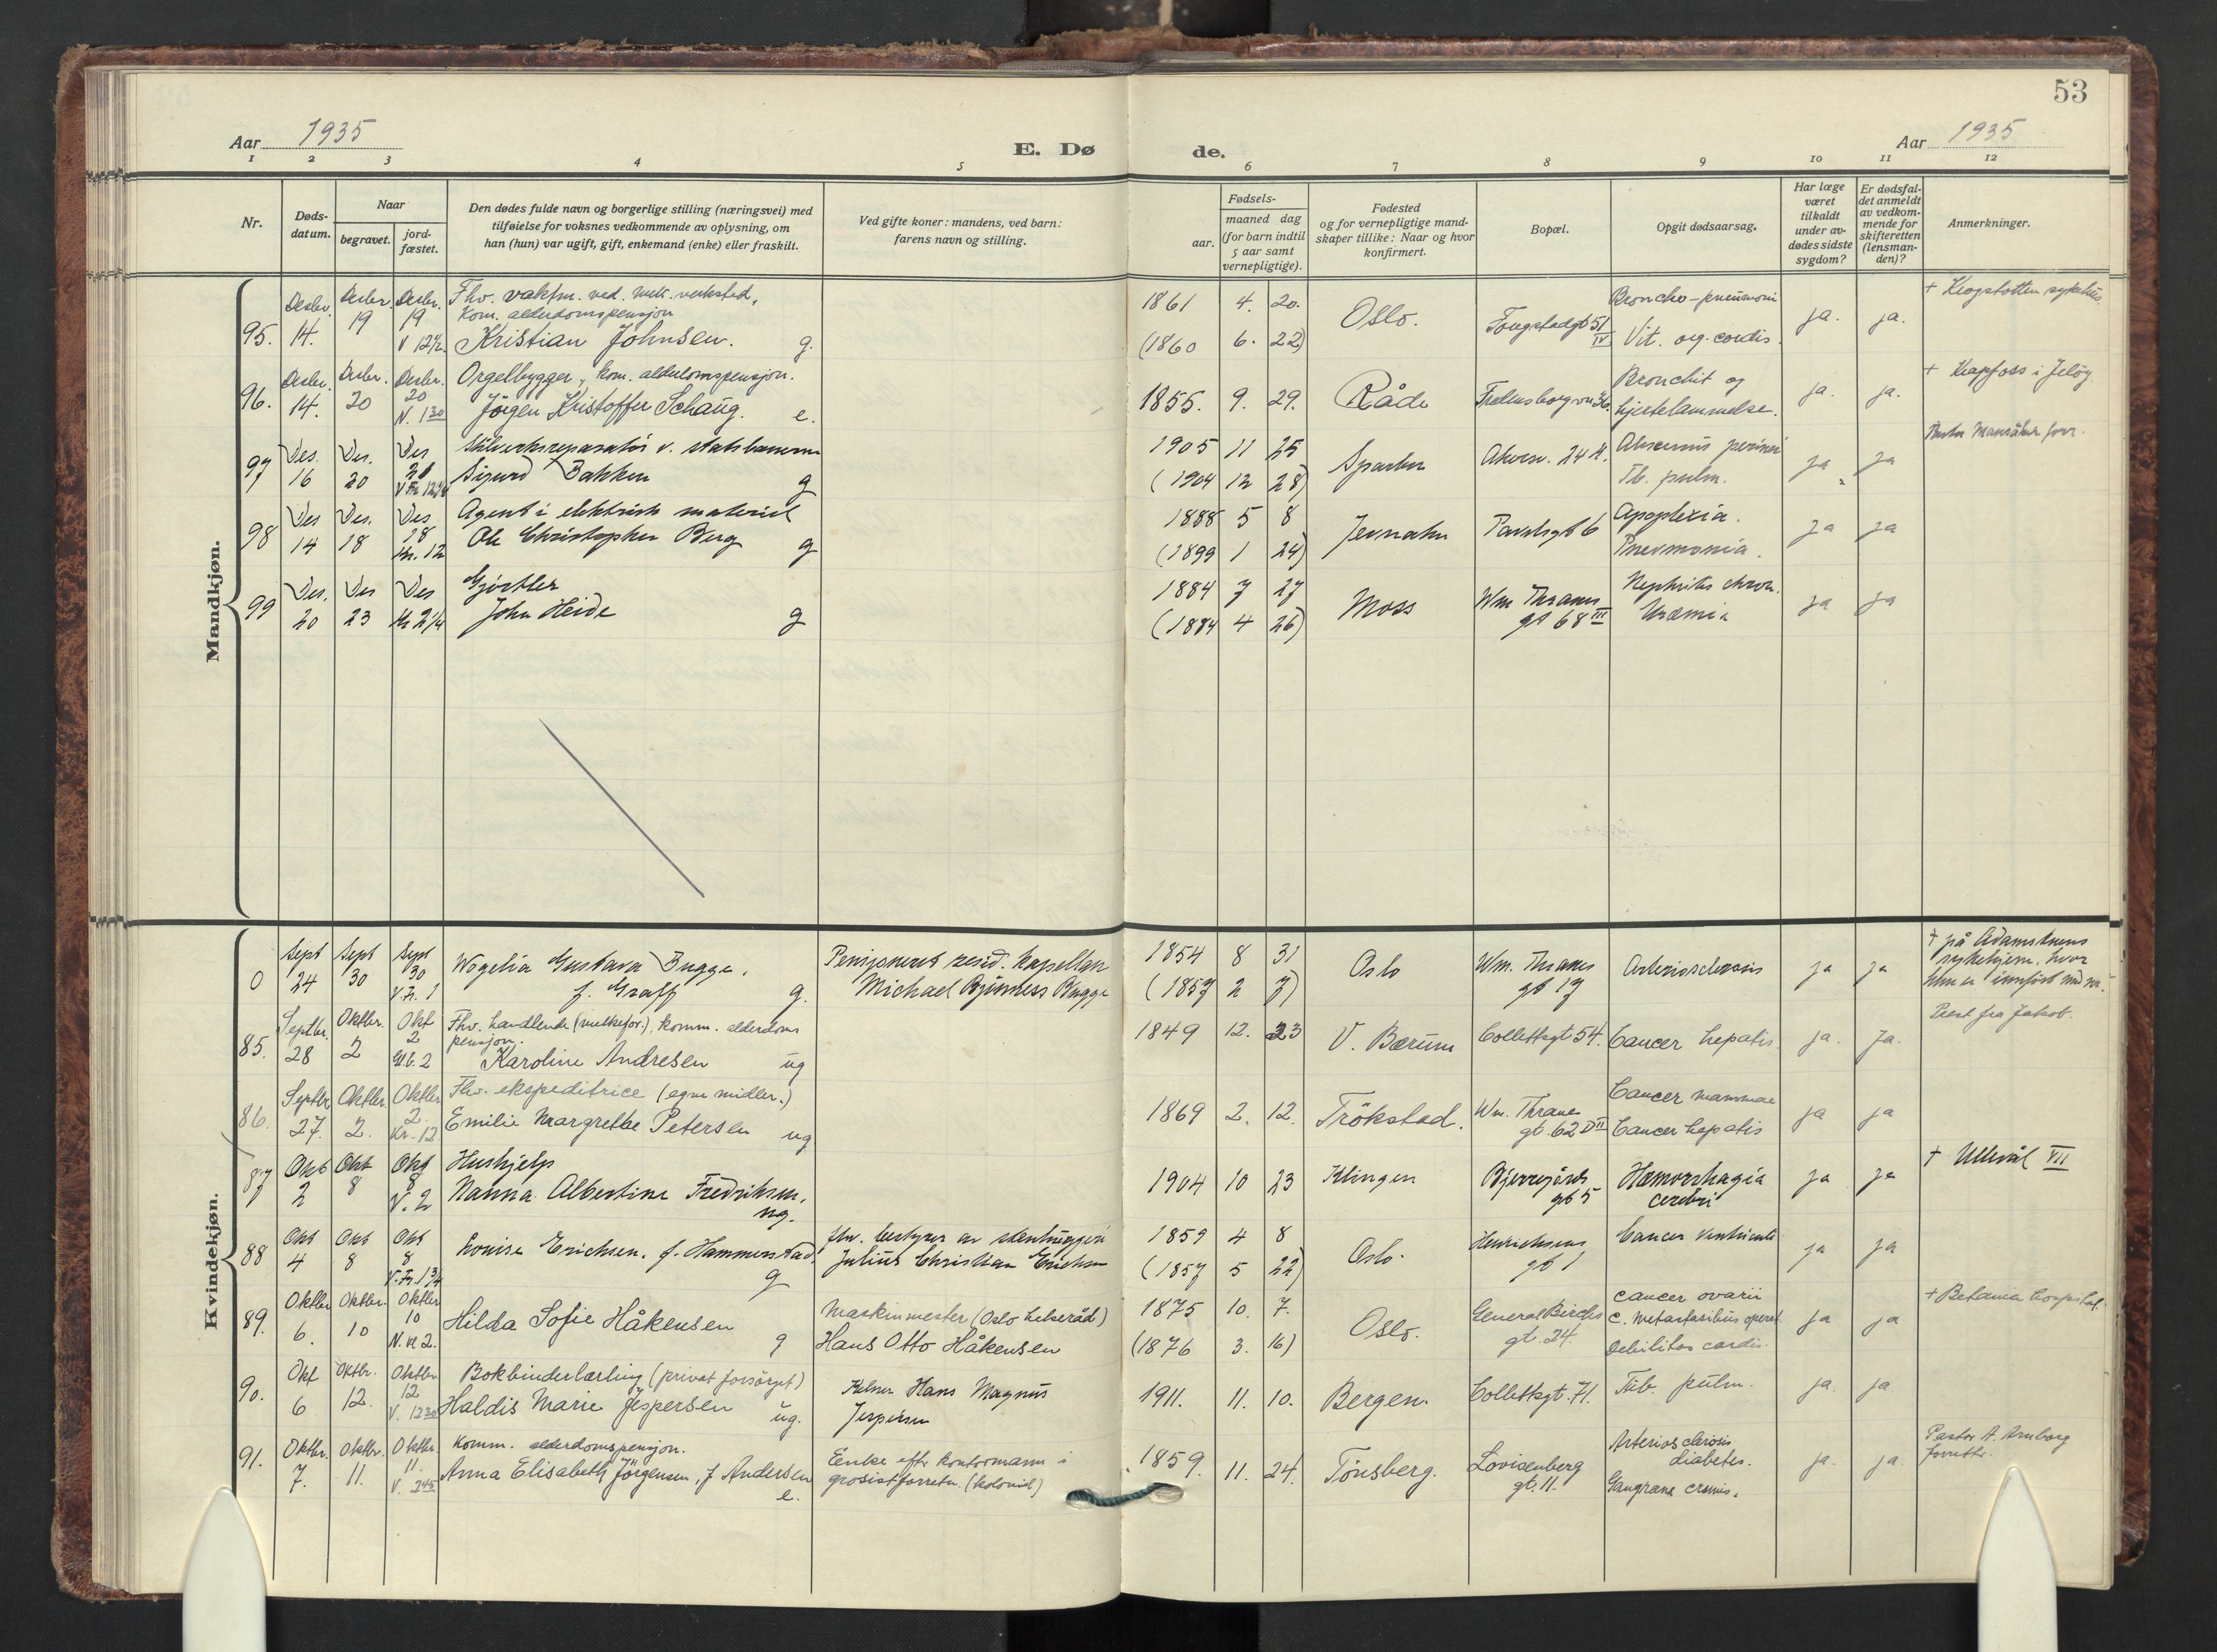 53
Aar 1935
E. Dø
de.
Aar 1935
1 2 3 4 5 6 7 8 9 10 11 12
Nr.
Døds-
datum.
Naar
begravet.
jord-
fæstet.
Den dødes fulde navn og borgerlige stilling (næringsvei) med
tilføielse for voksnes vedkommende av oplysning, om
han (hun) var ugift, gift, enkemand (enke) eller fraskilt.
Ved gifte koner: mandens, ved barn:
farens navn og stilling.
Fødsels-
aar.
maaned dag
(for barn indtil
5 aar samt
vernepligtige).
Fødested
og for vernepligtige mand-
skaper tillike: Naar og hvor
konfirmert.
Bopæl.
Opgit dødsaarsag.
Har læge
været
tilkaldt
under av-
dødes sidste
sygdom?
Er dødsfal-
det anmeldt
av vedkom-
mende for
skifteretten
(lensman-
den)?
Anmerkninger.
Mandkjøn.
95. Desbr. 14. Desbr. 19 Desbr. 19 V 12½
Fhv. vaktm. ved. mek. verksted,
kom. alderdomspensjon
Kristian Johnsen. g.
1861 4. 20.
(1860 6. 22)
Oslo.
Fougstadgt 51 IV
Broncho-pneumoni
Vit. org. cordis.
ja. ja.
+ Krogstøtten sykehus
96. Desbr. 14. Desbr. 20 Desbr. 20 N. 1 30
Orgelbygger, kom. alderdomspensjon.
Jörgen Kristoffer Schaug. e.
1855. 9. 29.
Råde
Fredensborgvn 36.
Bronchit og
hjertelammelse.
ja. ja.
+ Kapfoss i Jeløy
97 Des. 16 Des. 20 Des
v. statsbanene
Sigurd Bakken g
1905 11 25
(1904 12 28)
Akersv. 24
Tb. pulm.
ja ja
98 Des 14 Des. 18 Des 18 Kr. 12
Agent i elektrisk materiel
Ole Christopher Berg g
1888 5 8
(1899 1 24)
Jevnaker
Pavelsgt 6
Apoplexia.
Pnevmonia.
ja ja
99 Des. 20 Des 23 Des Kr 2¼
Gjørtler
John Heide g
1884 7 27
(1884 4 26)
Moss
Wm Thranes
gt 68 III
Nephritis chron.
Uræmia
ja ja
Kvindekjøn.
0 Sept 24 Sept 30 Sept 30 V. Fr. 1
Wogelia Gustava Bugge,
f. Graff g.
Pensjonert resid. kapellan
Michael Bugge
1854 8 31
(1857 2 7)
Oslo
Wm. Thranes
gt 17
Arteriosclerosis
ja ja
+ på Adamstuens
sykehjem, hvor
hun er innført med nr.
85. Septbr. 28 Oktbr. 2 Okt 2 Gl. 2
Fhv. handlende (melkefor.), komm. alderdoms
pensjon.
Karoline Andresen ug
1849 12. 23
V. Bærum
Collettsgt 54.
Cancer hepatis.
ja. Ja.
Prest fra Jakob.
86. Septbr 27. Oktbr. 2. Oktbr 2. Kr. 12
Fhv. ekspeditrice (egne midler.)
Emilie Margrethe Petersen ug
1869 2. 12.
Trökstad.
Wm. Thrane
gt. 62 D II
Cancer mammae
Cancer hepatis
ja ja
87 Okt 2 Okt 8 Okt 8 V. 2
Hushjelp
Nanna Albertine Fredriksen,
ug.
1904 10 23
Klingen
Bjerregårds
gt 5
Hæmorrhagia
cerebri
ja ja
+ Ullevål VII
88 Okt 4 Okt 8 Okt 8 V. Fr. 1¾
Louise Erichsen. f. Hammerstad.
g
Fhv. bestyrer av
Julius Christian Erichsen
1859 4 8
(1857 5 22)
Oslo.
Henrichsens
gt 1
Cancer ventriculi
ja ja
89. Oktbr 6. Oktbr. 10 Oktbr 10 N. kl 2.
Hilda Sofie Håkensen g
Maskinmester (Oslo helseråd)
Hans Otto Håkensen
1875 10. 7.
(1876 3. 16)
Oslo.
General Birchs
gt. 24.
cancer ovarii
c. metastasibus operat.
Debilitas cordis.
ja ja
+ Betania hospital.
90. Okt 6 Oktbr. 12. Oktbr 12 V. 12 30
Bokbinderlærling (privat forsörget)
Haldis Marie Jespersen ug.
Kelner Hans Magnus
Jespersen
1911. 11. 10.
Bergen.
Collettsgt. 71.
Tub. pulm.
ja. ja
91. Oktbr. 7. Oktbr. 11. Oktbr. 11. V. 2 45
Komm. alderdomspensjon.
Anna Elisabeth Jörgensen, f Andersen
e.
Eenke efter kontormann i
grosistforretn. (kolonial)
1859. 11. 24.
Tönsberg.
Lovisenberg
gt. 11.
Arteriosclerosis
diabetes.
Gangræna cruris.
ja. ja.
Pastor A. Arnborg
forrette